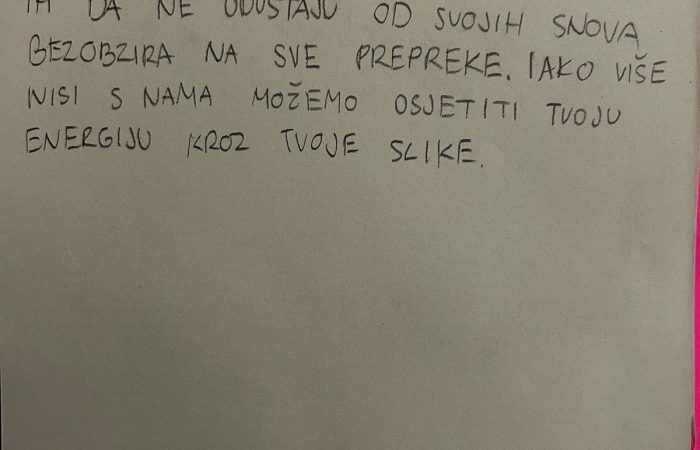 IH DA NE ODUSTAJU OD SVOJIH SNOVA
BEZOBZIRA NA SVE PREPREKE. IAKO VIŠE
NISI S NAMA MOŽEMO OSJETITI TVOJU
ENERGIJU KROZ TVOJE SLIKE.